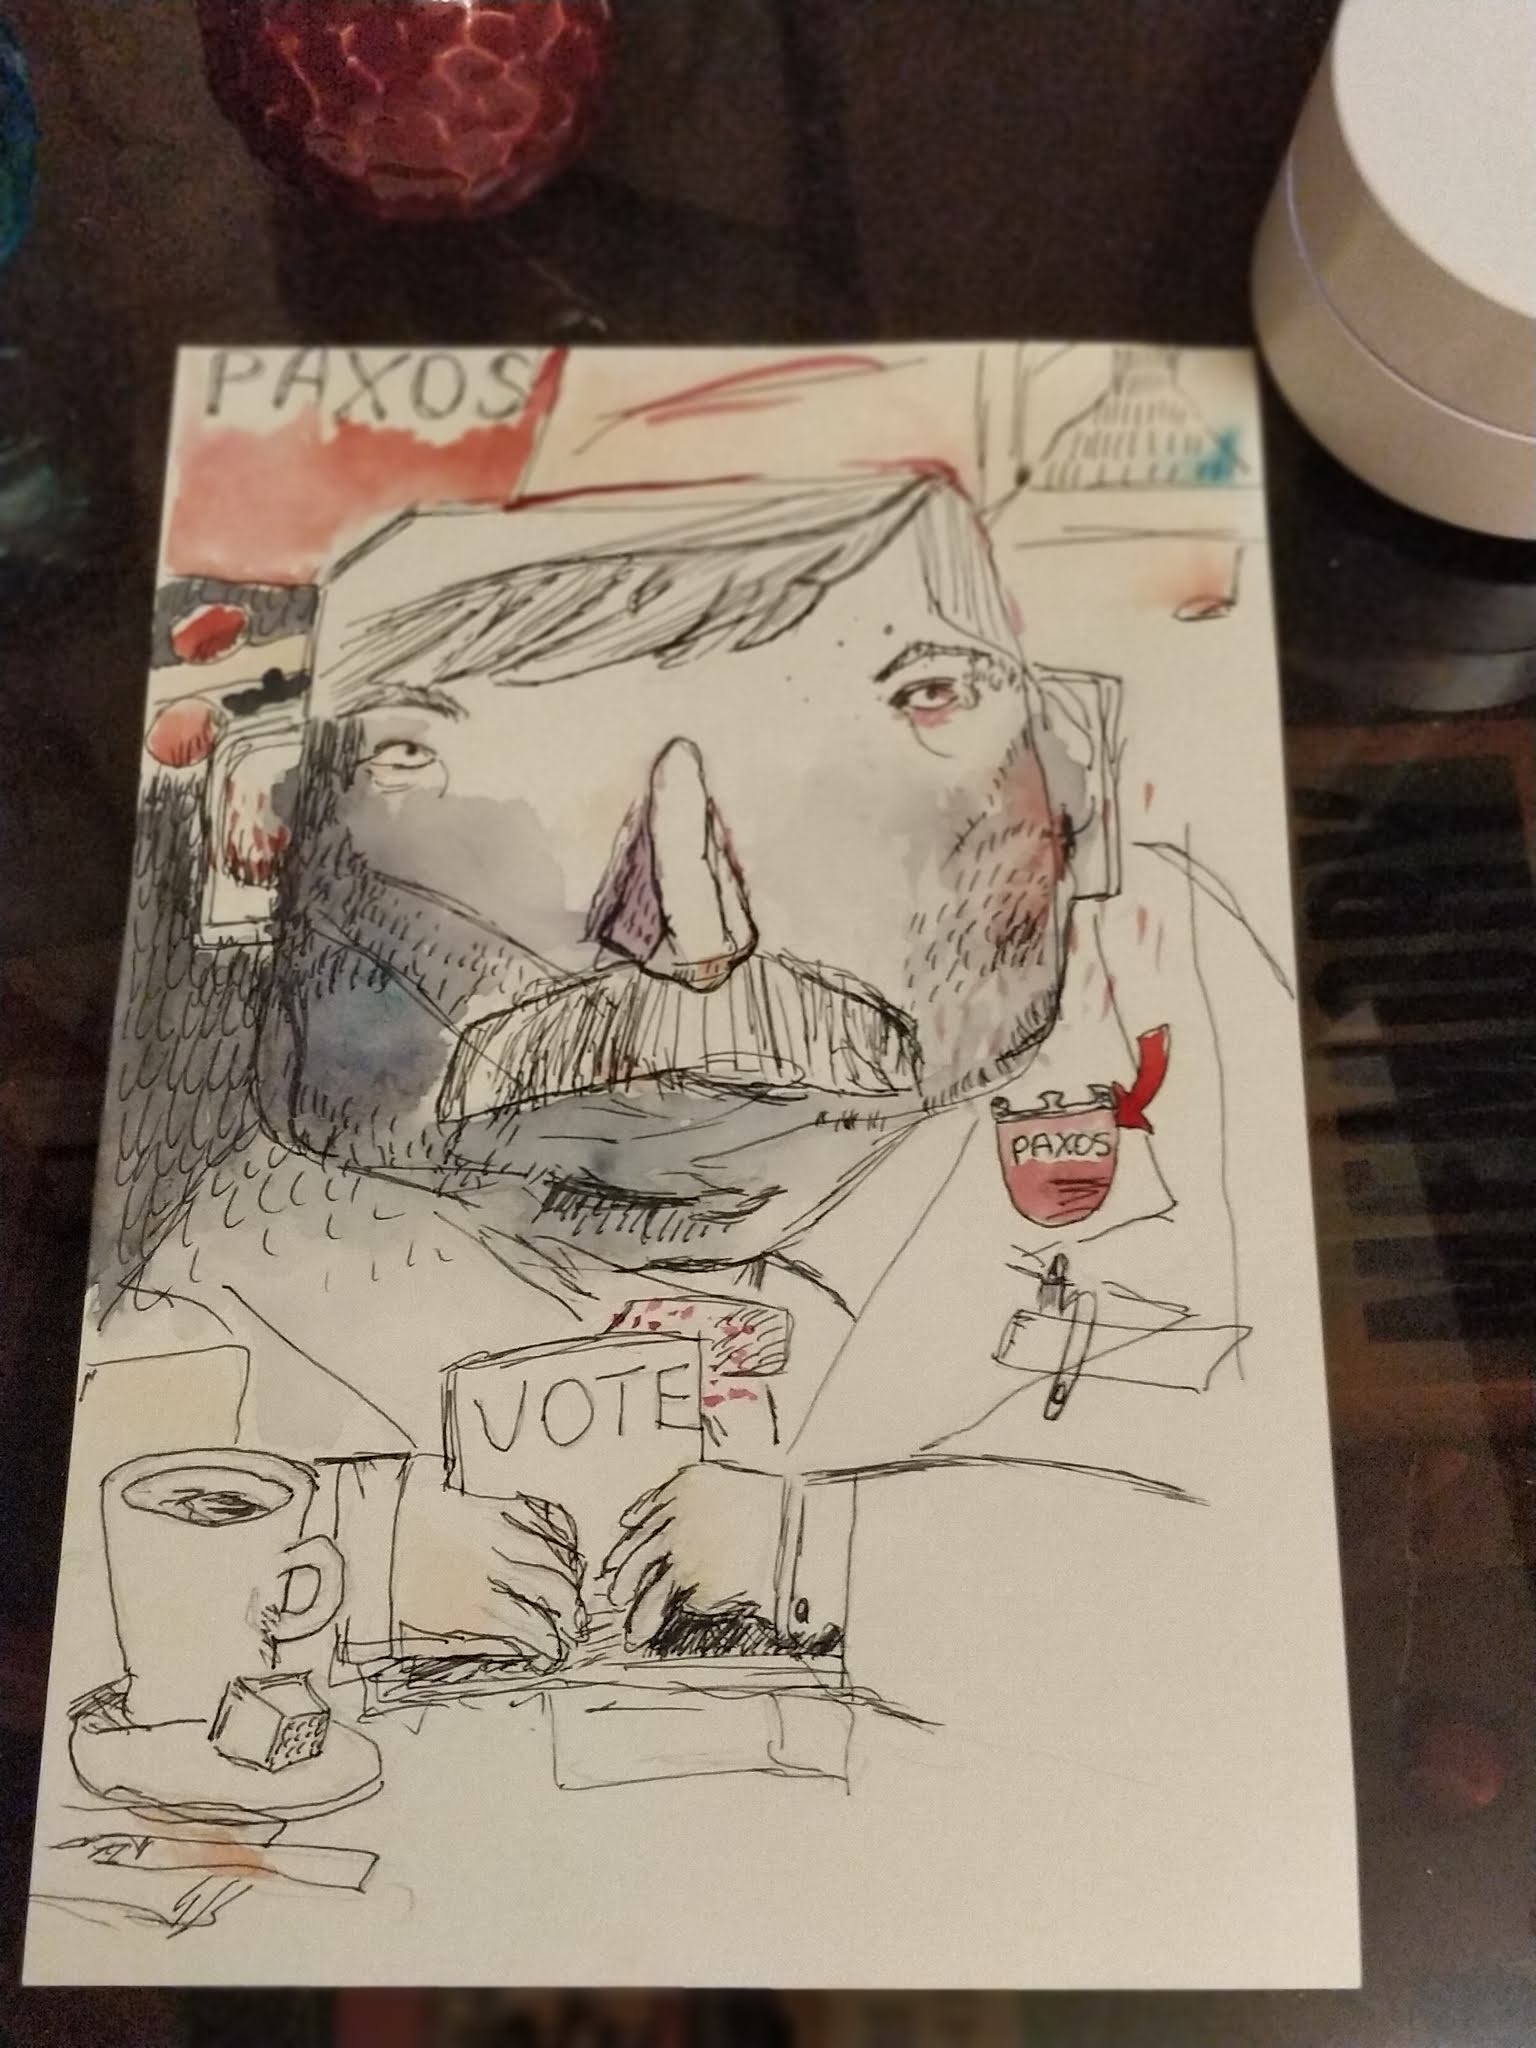 PAXOS
PAXOS
VOTE